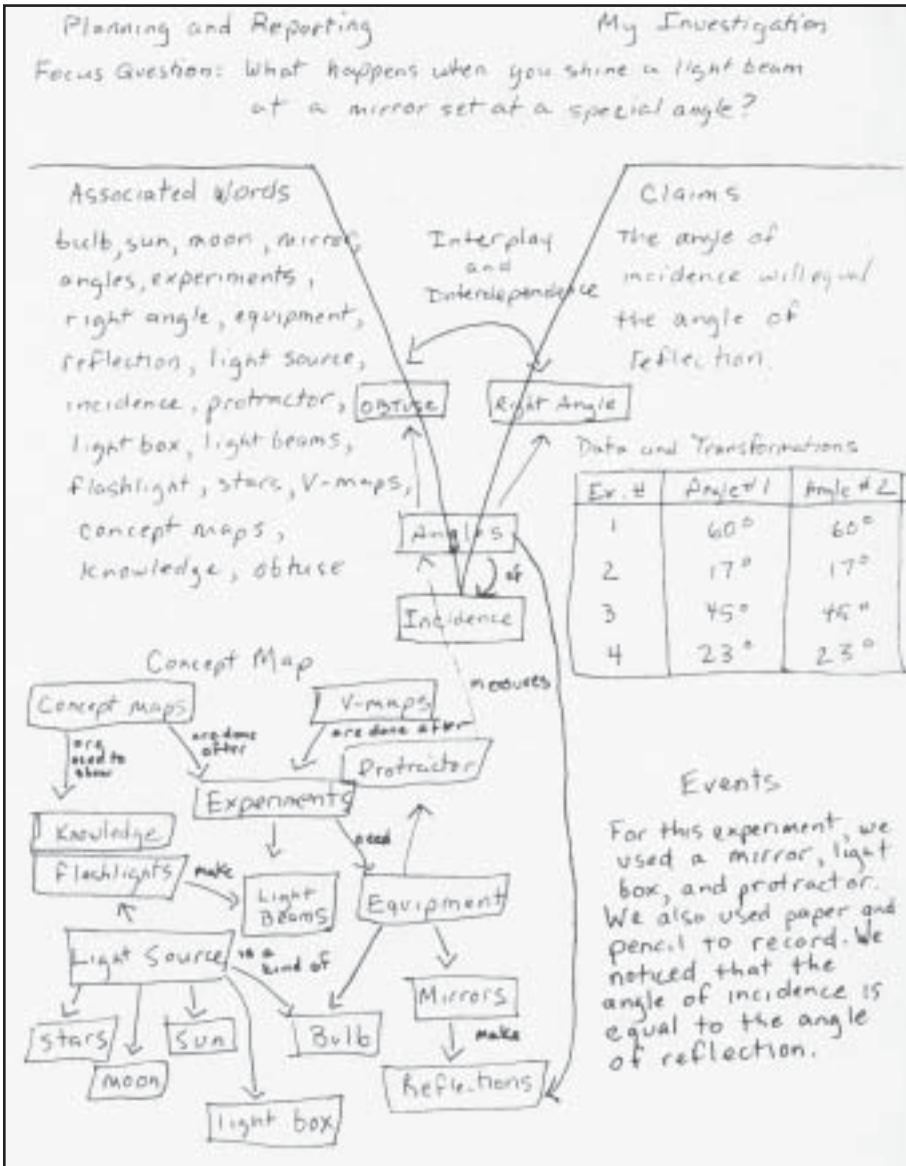 Planning and Reporting
My Investigation
Focus Question: What happens when you shine a light beam
at a mirror set at a special angle?
Associated Words
bulb, sun, moon, mirror,
angles, experiments,
right angle, equipment,
reflection, light source,
incidence, protractor,
light box, light beams,
flashlight, stars, V-maps,
concept maps,
knowledge, obtuse
Interplay
and
Interdependence
OBTUSE
Right Angle
Angles
of
Incidence
Claims
The angle of
incidence will equal
the angle of
reflection.
Data and Transformations
Ex. # Angle #1 Angle #2
1 60° 60°
2 17° 17°
3 45° 45°
4 23° 23°
Concept Map
Concept maps
V-maps
measures
are
used to
show
are done
after
are done after
Protractor
Experiments
Knowledge
need
Flashlights
make
Light
Beams
Equipment
Light Source
is a
kind of
Mirrors
Stars
Sun
Bulb
make
moon
Reflections
light box
Events
For this experiment, we
used a mirror, light
box, and protractor.
We also used paper and
pencil to record. We
noticed that the
angle of incidence is
equal to the angle
of reflection.